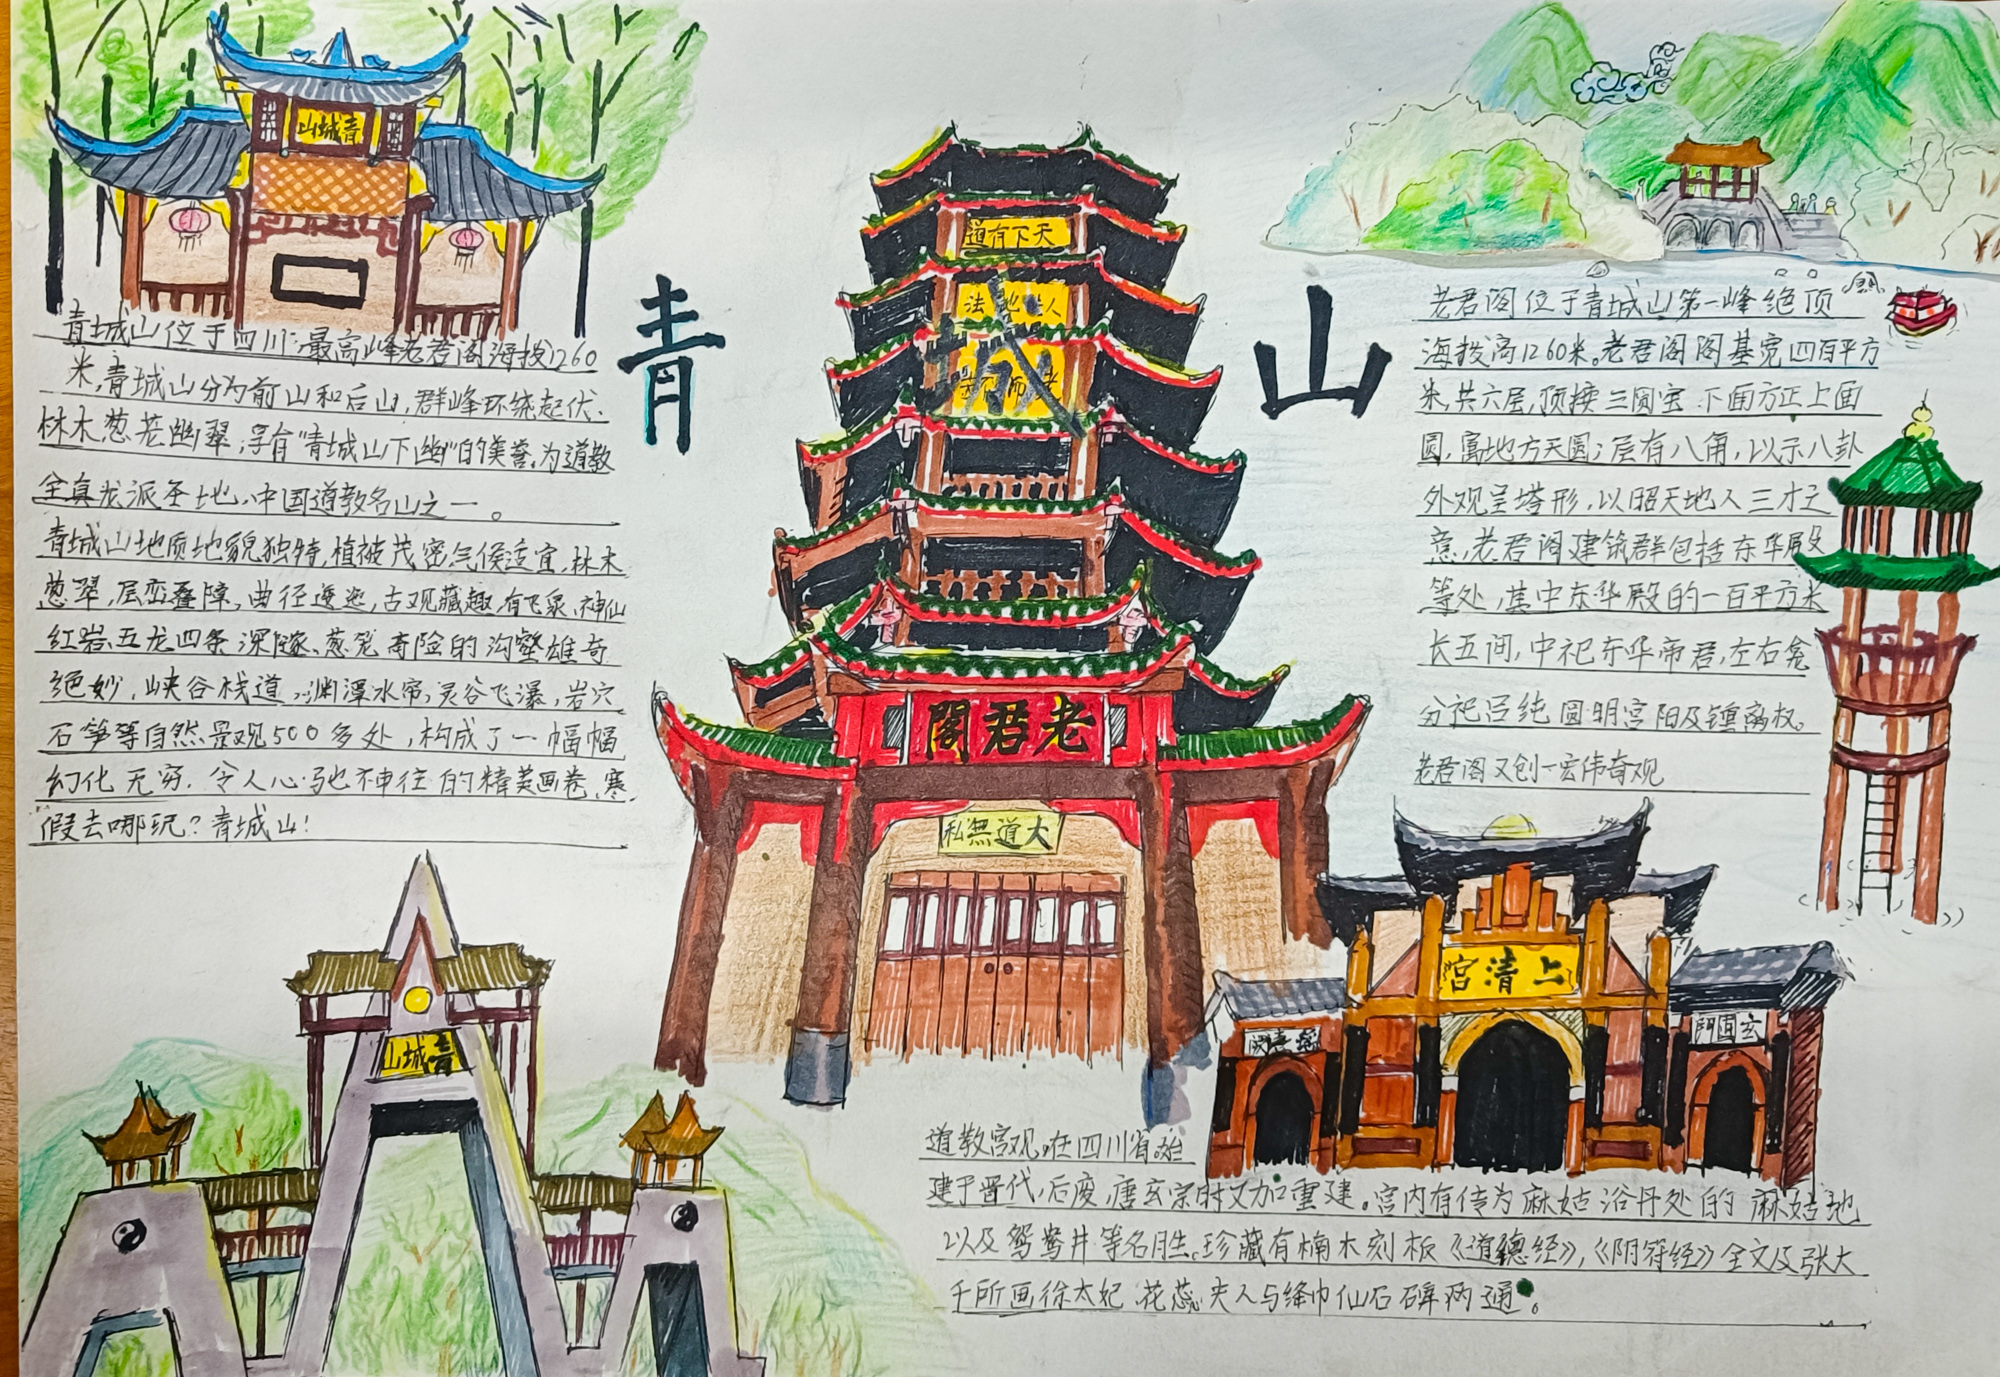 青城山
青城山
青城山位于四川,最高峰老君阁海拔1260
米,青城山分为前山和后山,群峰环绕起伏、
林木葱茏幽翠,享有"青城山下幽"的美誉。为道教
全真龙派圣地,中国道教名山之一。
青城山地质地貌独特,植被茂密,气候适宜,林木
葱翠,层峦叠障,曲径逶迤,古观藏趣,有飞泉、神仙
红岩、五龙四条深隧、葱笼奇险的沟壑雄奇
绝妙,峡谷栈道,渊潭水帘,灵谷飞瀑,岩穴
石笋等自然景观500多处,构成了一幅幅
幻化无穷,令人心驰神往的精美画卷、寒
假去哪玩?青城山!
天下有道
人法地
老君阁
大道無私
老君阁位于青城山第一峰绝顶
海拔高1260米。老君阁阁基宽四百平方
米,共六层,顶接三圆宝 下面方正上面
圆,寓地方天圆;层有八角,以示八卦
外观呈塔形,以昭天地人三才之
意,老君阁建筑群包括东华殿
等处,其中东华殿的一百平方米
长五间,中祀东华帝君,左右龛
分祀吕纯 圆明宫阳及镇离权。
老君阁又创一宏伟奇观
青城山
上清宫
玄真門
道教宫观。在四川省。始
建于晋代,后废,唐玄宗时又加重建。宫内有传为麻姑浴丹处的麻姑池
以及鸳鸯井等名胜。珍藏有楠木刻板《道德经》,《阴符经》全文及张大
千所画徐太妃、花蕊夫人与绛巾仙石碑两通。